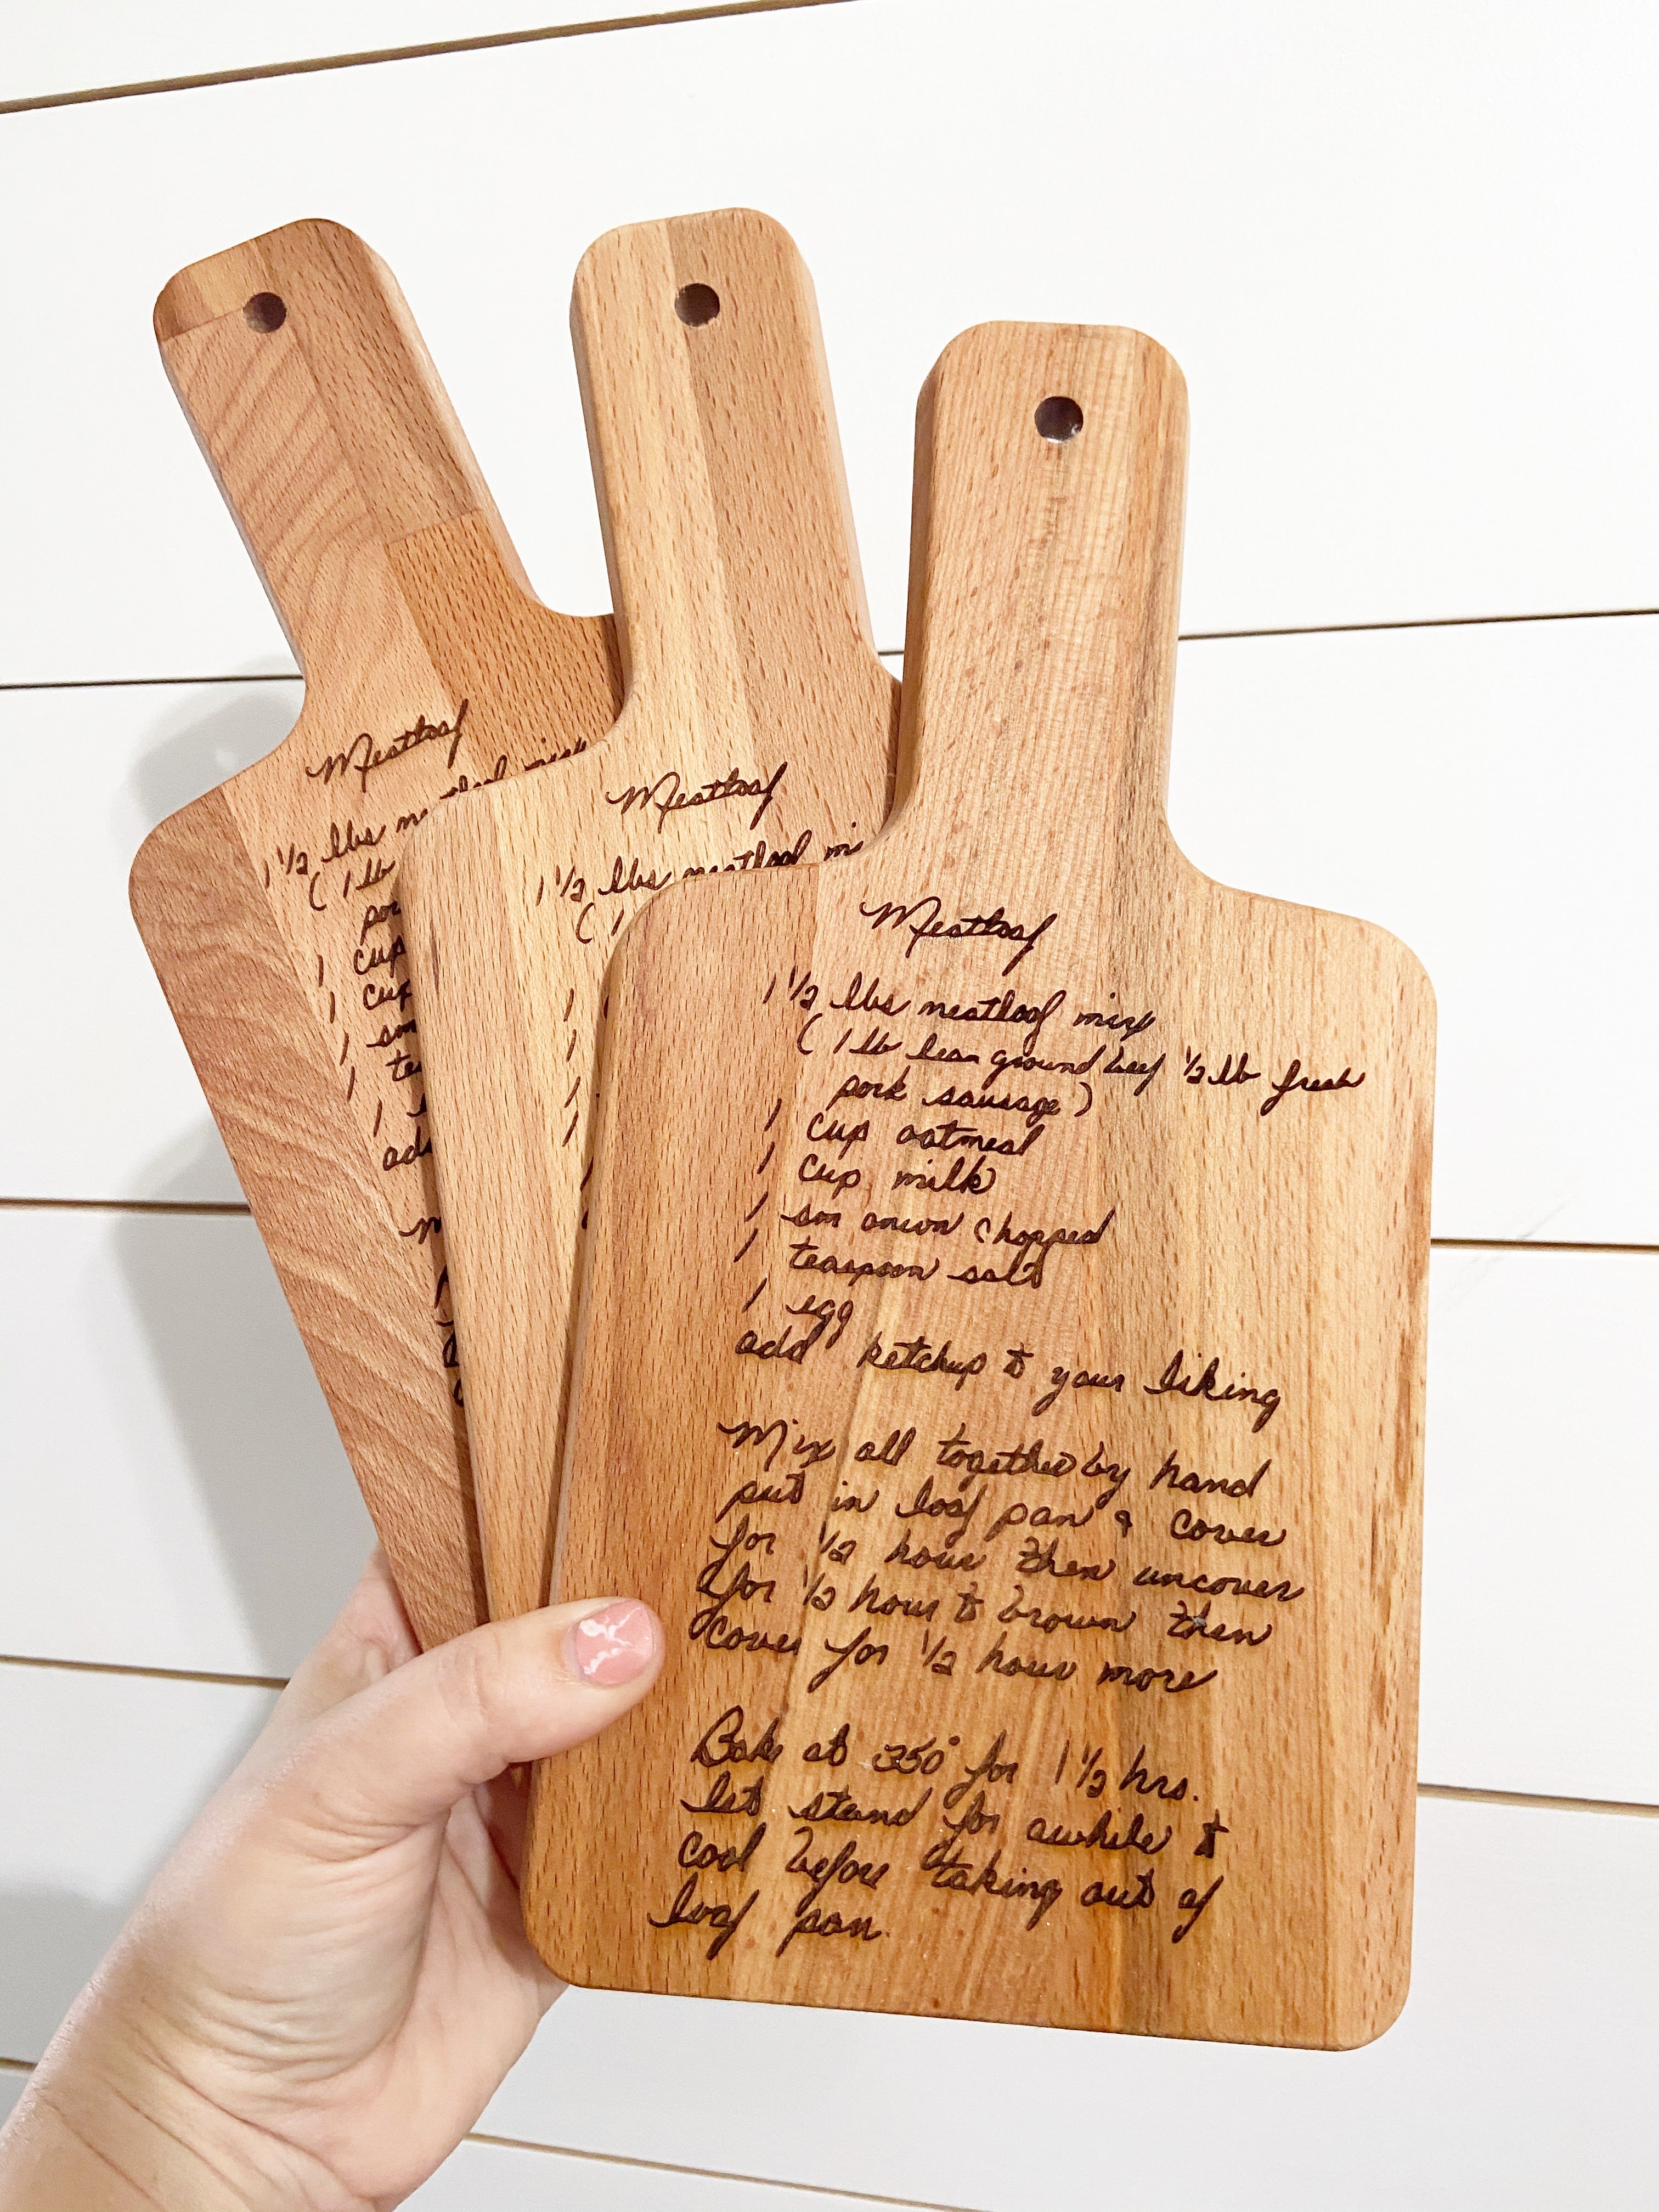 Meatloaf
1 1/2 lbs m
( 1 lb
por
1 cup
1 cup
1 sm
1 te
1
add
m
Meatloaf
1 1/2 lbs meatloaf mi
( 1
1
1
1
1
Meatloaf
1 1/2 lbs meatloaf mix
( 1 lb lean ground beef 1/2 lb fresh
pork sausage )
1 cup oatmeal
1 cup milk
1 sm onion chopped
1 teaspoon salt
1 egg
add ketchup to your liking
Mix all together by hand
put in loaf pan & cover
for 1/2 hour then uncover
for 1/2 hour to brown then
cover for 1/2 hour more
Bake at 350° for 1 1/2 hrs.
let stand for awhile to
cool before taking out of
loaf pan.